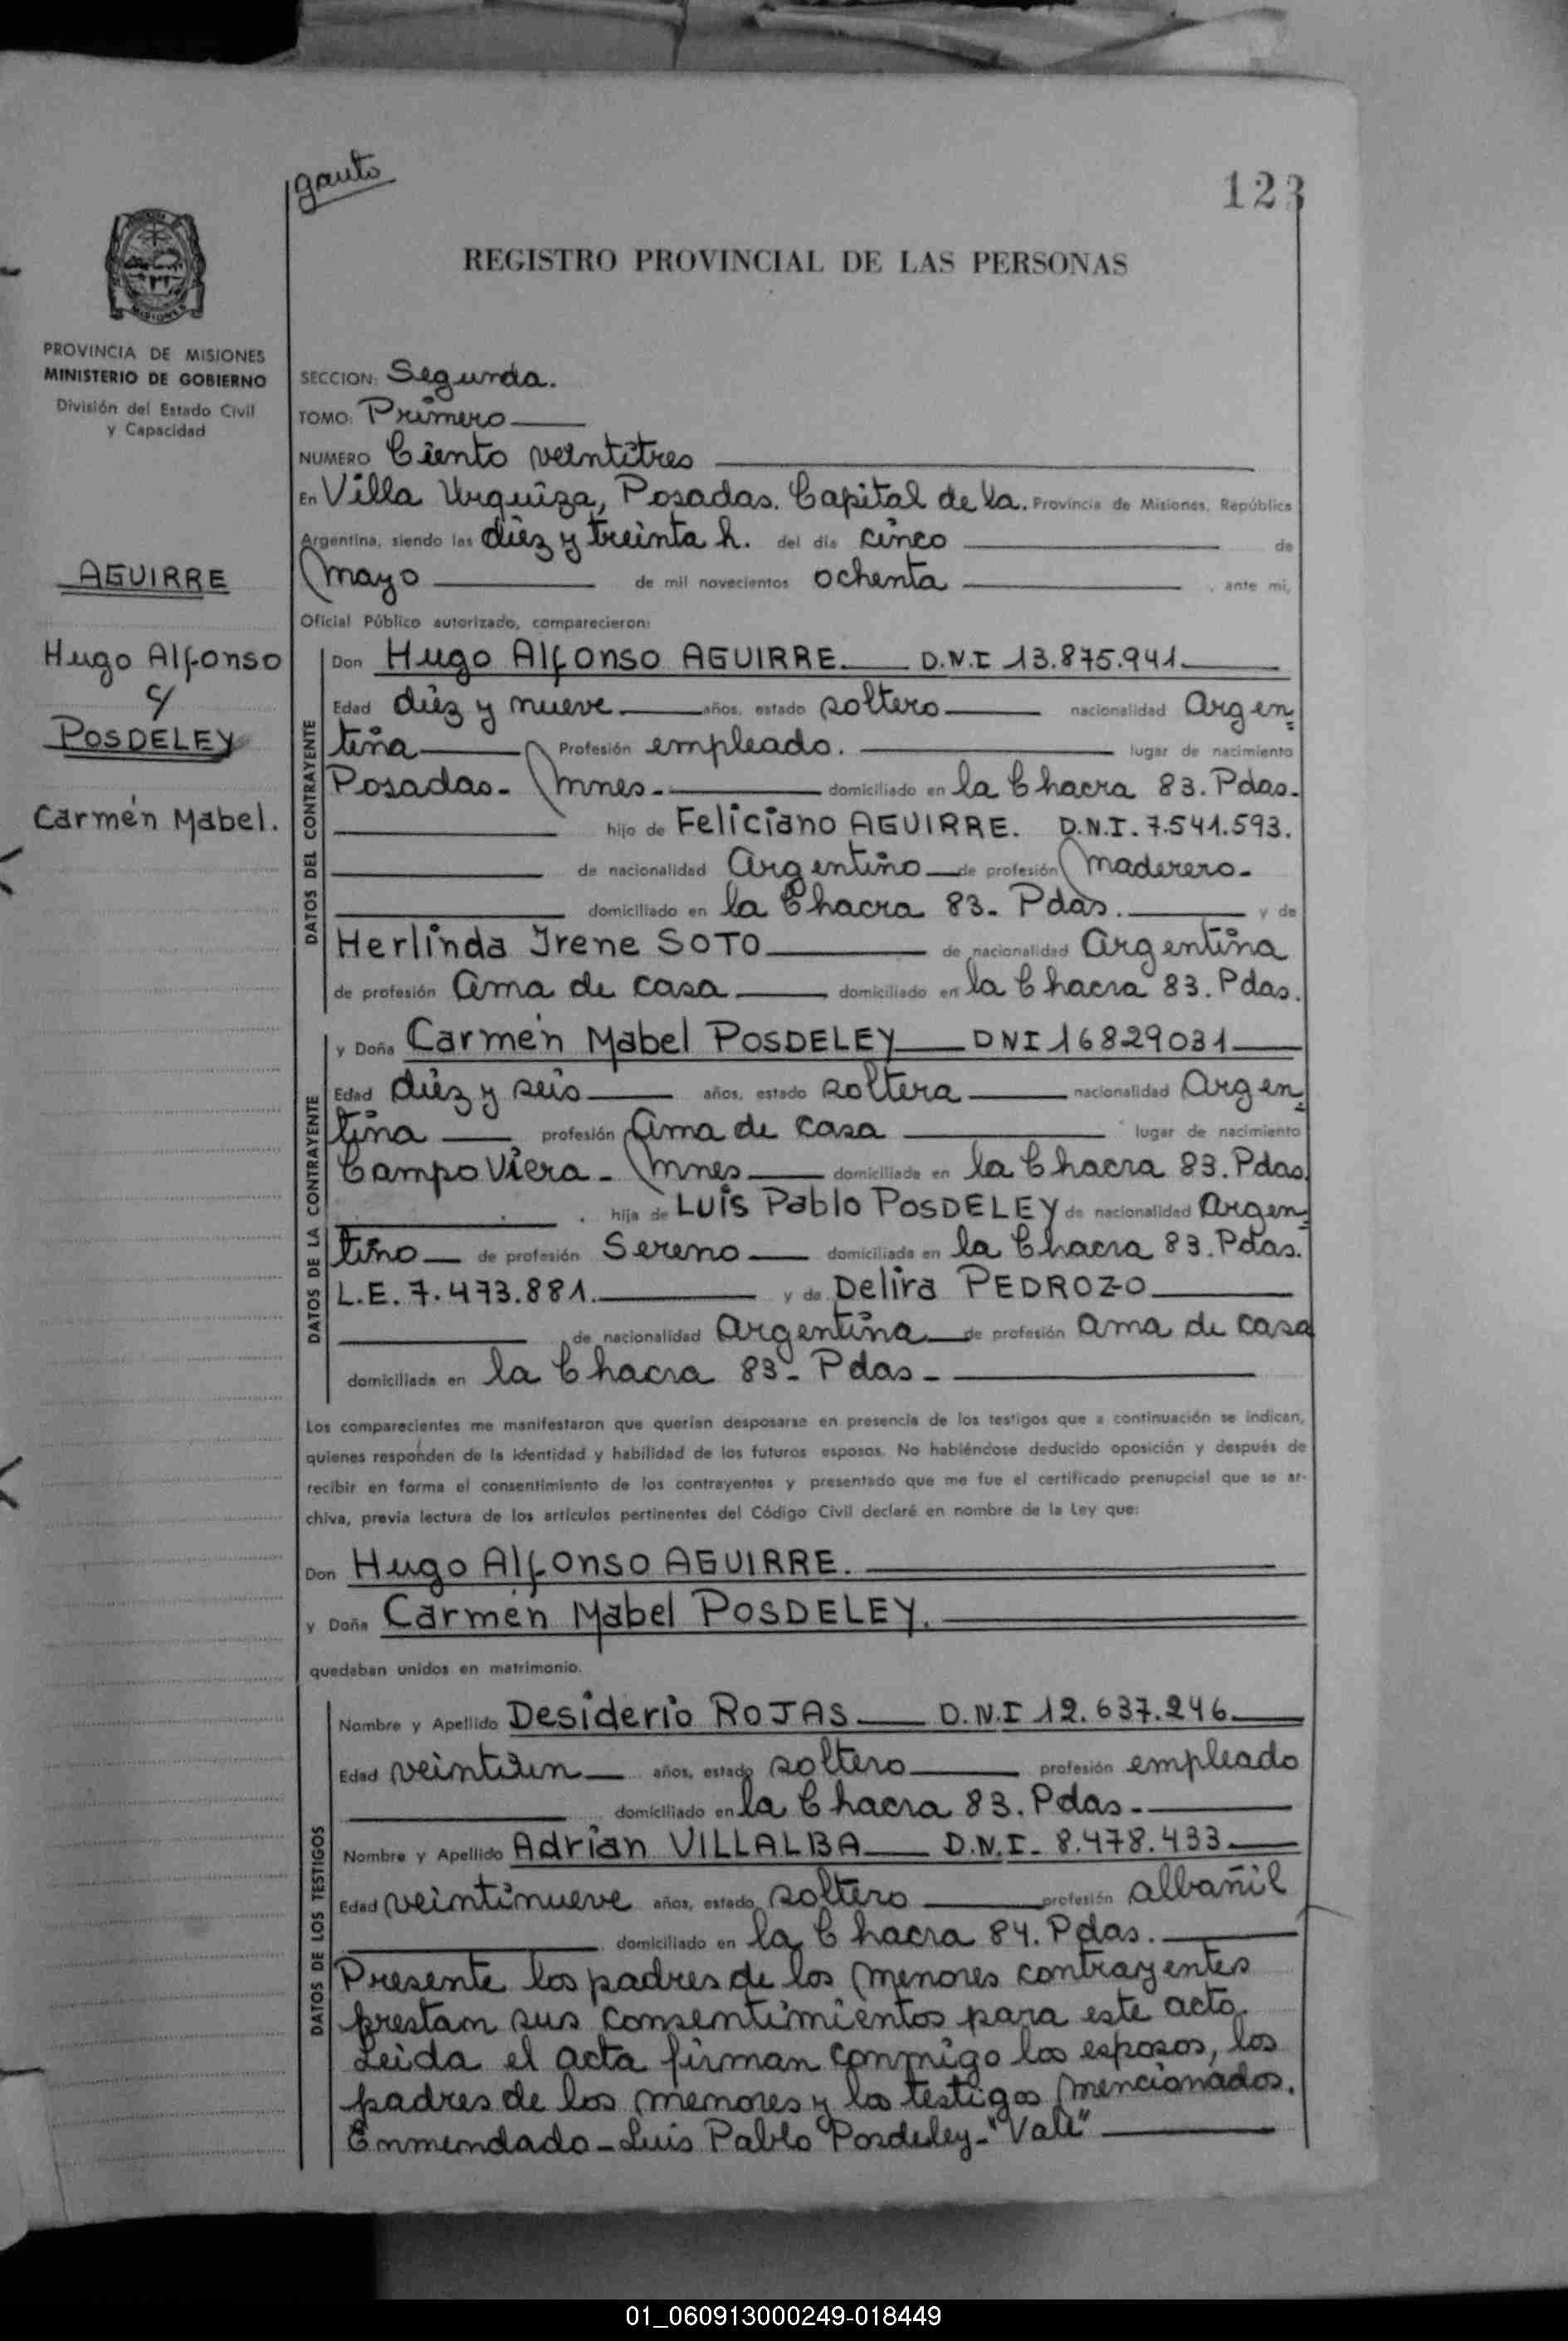 gauto
123
REGISTRO PROVINCIAL DE LAS PERSONAS
MISIONES
PROVINCIA DE MISIONES
MINISTERIO DE GOBIERNO
División del Estado Civil
y Capacidad
AGUIRRE
Hugo Alfonso
c/
POSDELEY
Carmen Mabel.
SECCION: Segunda.
TOMO: Primero
NUMERO Ciento veintitres
En Villa Urquiza, Posadas. Capital de la. Provincia de Misiones, República
Argentina, siendo las diez y treinta h. del día cinco de
mayo de mil novecientos ochenta , ante mi,
Oficial Público autorizado, comparecieron:
DATOS DEL CONTRAYENTE
Don Hugo Alfonso AGUIRRE. D.N.I 13.875.941.
Edad diez y nueve años, estado soltero nacionalidad Argen=
tina Profesión empleado. lugar de nacimiento
Posadas- Mnes- domiciliado en la Chacra 83. Pdas.
hijo de Feliciano AGUIRRE. D.N.I. 7.541.593.
de nacionalidad Argentino de profesión Maderero-
domiciliado en la Chacra 83- Pdas. y de
Herlinda Irene SOTO de nacionalidad Argentina
de profesión Ama de casa domiciliado en la Chacra 83. Pdas.
DATOS DE LA CONTRAYENTE
y Doña Carmen Mabel POSDELEY DNI 16829031
Edad diez y seis años, estado soltera nacionalidad Argen=
tina profesión Ama de casa lugar de nacimiento
Campo Viera- Mnes domiciliada en la Chacra 83. Pdas.
hija de LUIS Pablo POSDELEY de nacionalidad Argen=
tino de profesión Sereno domiciliada en la Chacra 83. Pdas.
L.E. 7.473.881. y de Delira PEDROZO
de nacionalidad Argentina de profesión Ama de casa
domiciliada en la Chacra 83- Pdas-
Los comparecientes me manifestaron que querían desposarse en presencia de los testigos que a continuación se indican,
quienes responden de la identidad y habilidad de los futuros esposos. No habiéndose deducido oposición y después de
recibir en forma el consentimiento de los contrayentes y presentado que me fue el certificado prenupcial que se ar-
chiva, previa lectura de los artículos pertinentes del Código Civil declaré en nombre de la Ley que:
Don Hugo Alfonso AGUIRRE.
y Doña Carmen Mabel POSDELEY.
quedaban unidos en matrimonio.
DATOS DE LOS TESTIGOS
Nombre y Apellido Desiderio ROJAS D.N.I 12.637.246
Edad veintiun años, estado soltero profesión empleado
domiciliado en la Chacra 83. Pdas-
Nombre y Apellido Adrian VILLALBA D.N.I- 8.478.433
Edad veintinueve años, estado soltero profesión albañil
domiciliado en la Chacra 84. Pdas.
Presente los padres de los menores contrayentes
prestan sus consentimientos para este acto.
Leida el acta firman conmigo los esposos, los
padres de los menores y los testigos mencionados.
Enmendado- Luis Pablo Posdeley- "Vale"
01_060913000249-018449